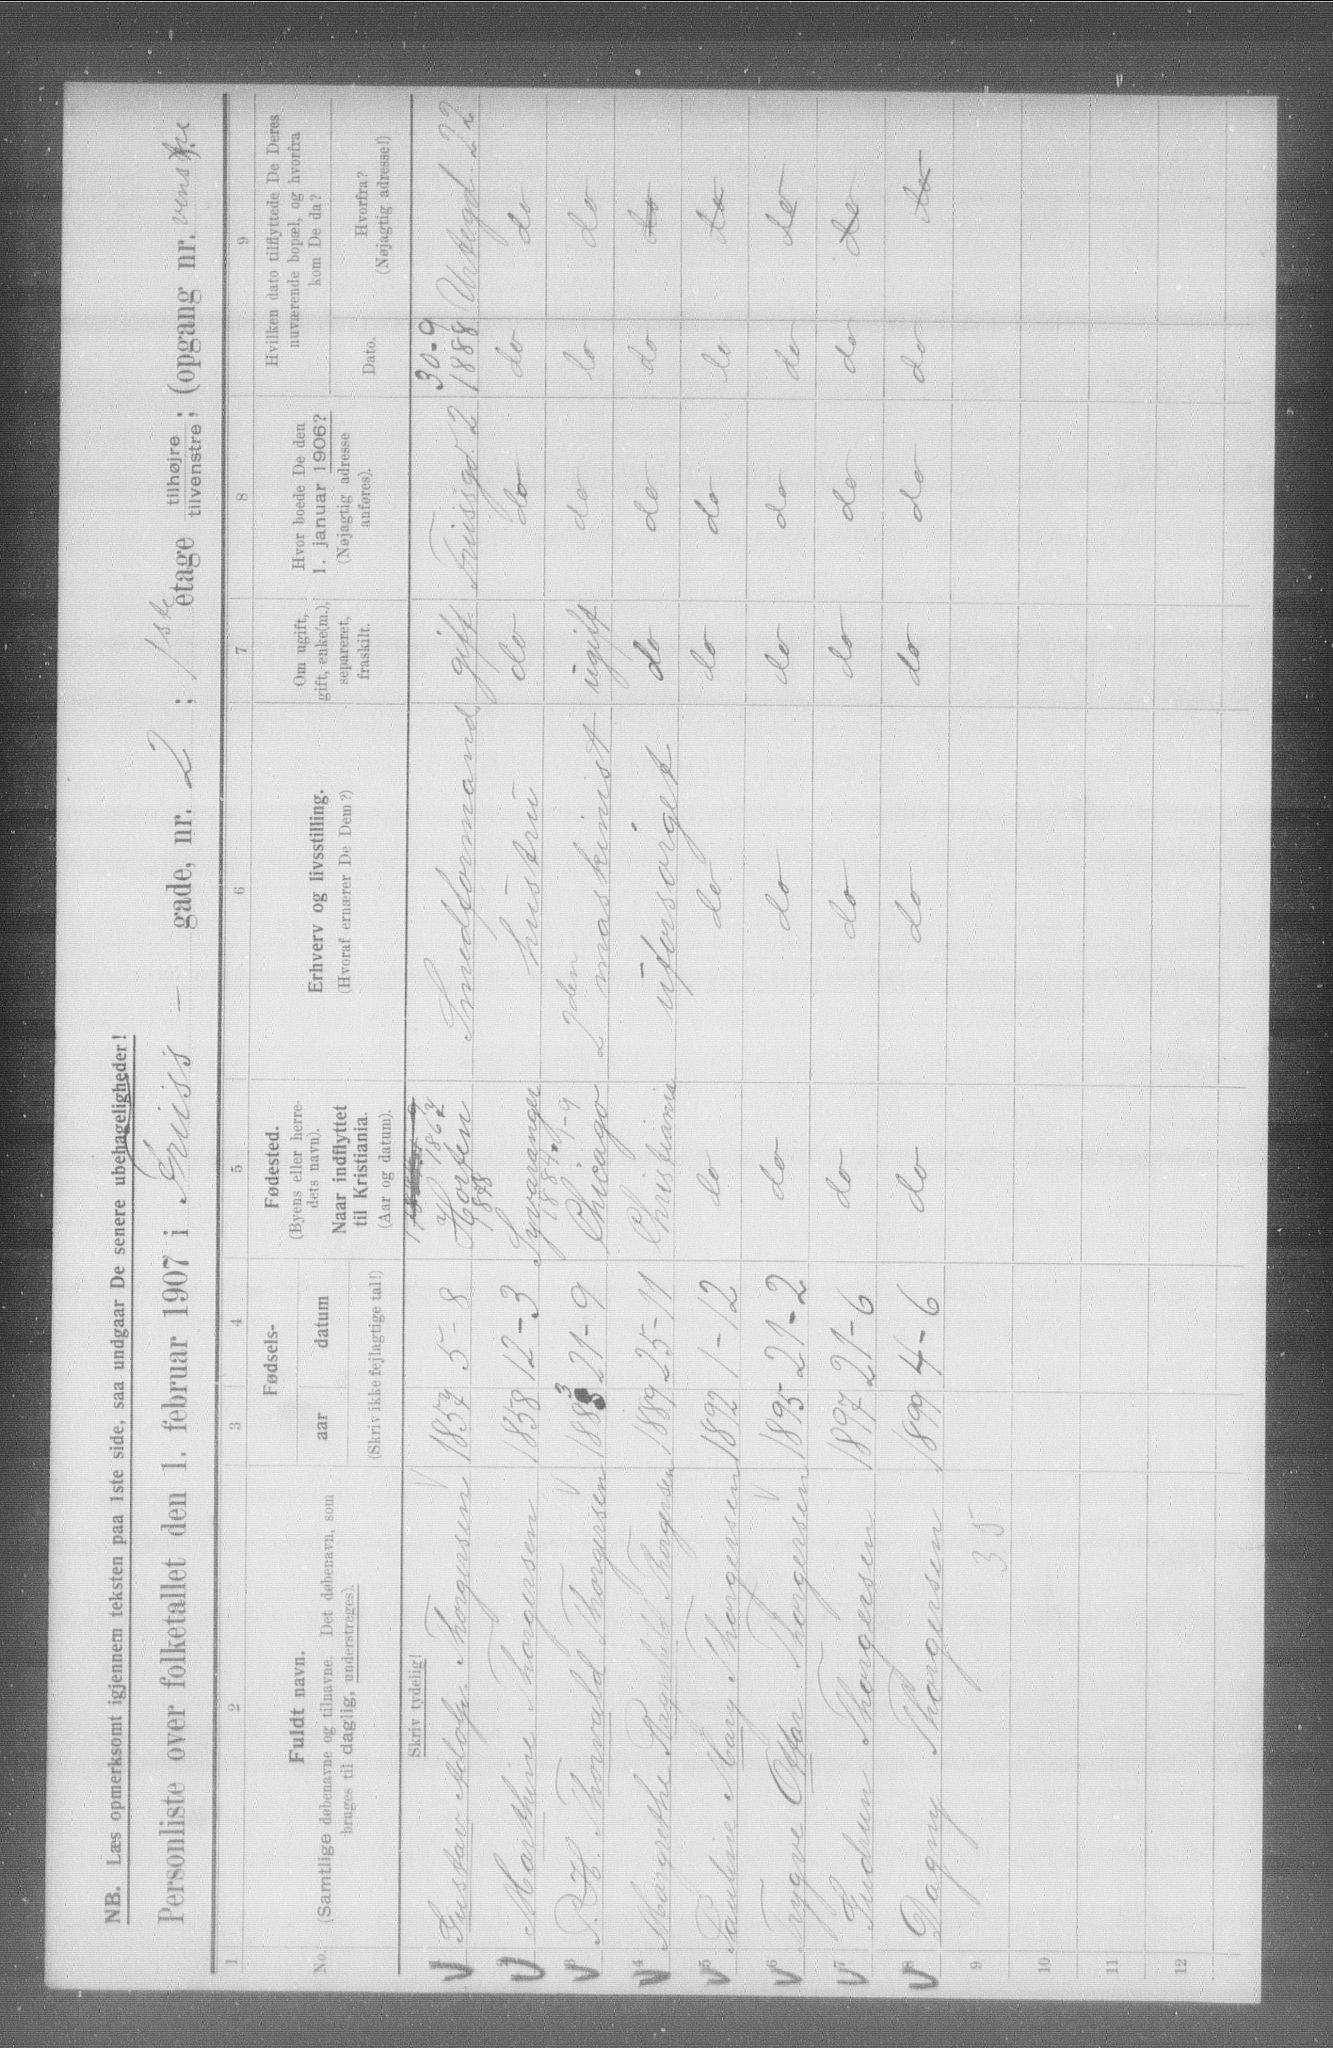 NB. Læs opmerksomt igjennem teksten paa 1ste side, saa undgaar De senere ubehageligheder!
Personliste over folketallet den 1. februar 1907 i Friiss - gade, nr. 2 ; 1ste etage tilhøjre / tilvenstre ; (opgang nr. venstre
1 2 3 4 5 6 7 8 9
No. Fuldt navn. (Samtlige døbenavne og tilnavne. Det døbenavn, som bruges til daglig, understreges).
Fødsels- aar datum (Skriv ikke fejlagtige tal!)
Fødested. (Byens eller herredets navn). Naar indflyttet til Kristiania. (Aar og datum).
Erhverv og livsstilling. (Hvoraf ernærer De Dem?)
Om ugift, gift, enke(m.), separeret, fraskilt.
Hvor boede De den 1. januar 1906? (Nøjagtig adresse anføres).
Hvilken dato tilflyttede De Deres nuværende bopæl, og hvorfra kom De da?
Dato. Hvorfra? (Nøjagtig adresse!)
Skriv tydelig!
1 Gustav Adolf Thorgersen 1857 5-8 Horten 1878 Smedformand gift Friissgd. 2 30-9 1888 Urtegd. 22
2 Marthine Thorgersen 1858 12-3 Syvaranger 1884 1-9 hustru do do do do
3 R. H. Thorvald Thorgersen 1883 21-9 Chicago 2den maskinist ugift do do do
4 Margrethe Ragnhild Thorgersen 1889 25-11 Christiania uforsorget do do do do
5 Pauline Mary Thorgersen 1892 1-12 do do do do do do
6 Trygve Ottar Thorgersen 1895 21-2 do do do do do do
7 Gudrun Thorgersen 1897 21-6 do do do do do do
8 Dagny Thorgersen 1899 4-6 do do do do do do
9 35
10
11
12